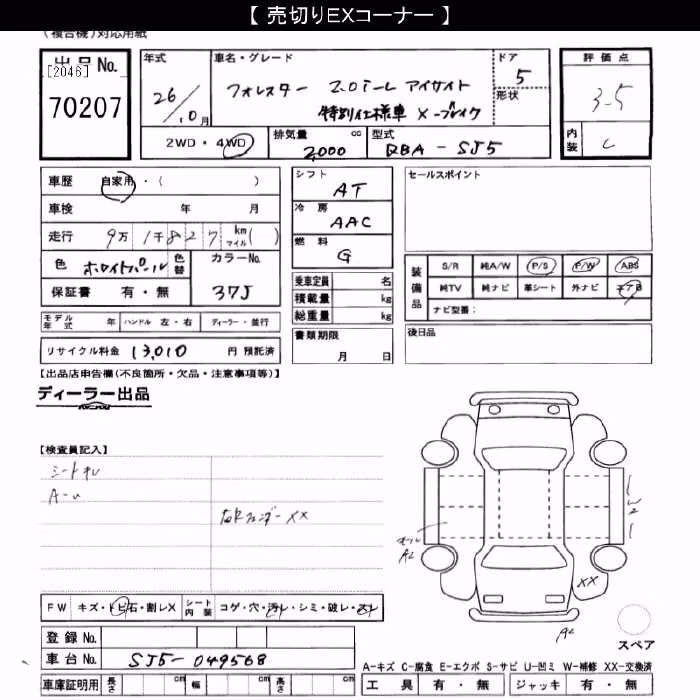 【 売切りEXコーナー 】
(複合機)対応用紙
出品No.
[2046]
70207
年式
26/10月
車名・グレード
フォレスター 2.0i-L アイサイト
特別仕様車 X-ブレイク
ドア
5
形状
評価点
3.5
内装
C
2WD・4WD
排気量
cc
2,000
型式
DBA-SJ5
車歴 自家用・( )
車検 年 月
走行 9万 1千 8 2 7 km マイル( )
色 ホワイトパール
色替
カラーNo.
37J
保証書 有・無
モデル年式 年 ハンドル 左・右 ディーラー・並行
リサイクル料金 13,010 円 預託済
シフト
AT
冷房
AAC
燃料
G
乗車定員 名
積載量 kg
総重量 kg
書類期限
月 日
セールスポイント
装備品
S/R 純A/W P/S P/W ABS
純TV 純ナビ 革シート 外ナビ エアB
ナビ型番:
後日品
【出品店申告欄(不良箇所・欠品・注意事項等)】
ディーラー出品
【検査員記入】
シートキレ
A-u
右Rフェンダー XX
モール
A2
W2
XX
A2
スペア
FW キズ・トビ石・割レX
シート内装 コゲ・穴・汚レ・シミ・破レ・スレ
登録No.
車台No. SJ5-049568
車庫証明用 長さ cm 幅 cm 高さ cm
A-キズ C-腐食 E-エクボ S-サビ U-凹ミ W-補修 XX-交換済
工具 有・無 ジャッキ 有・無